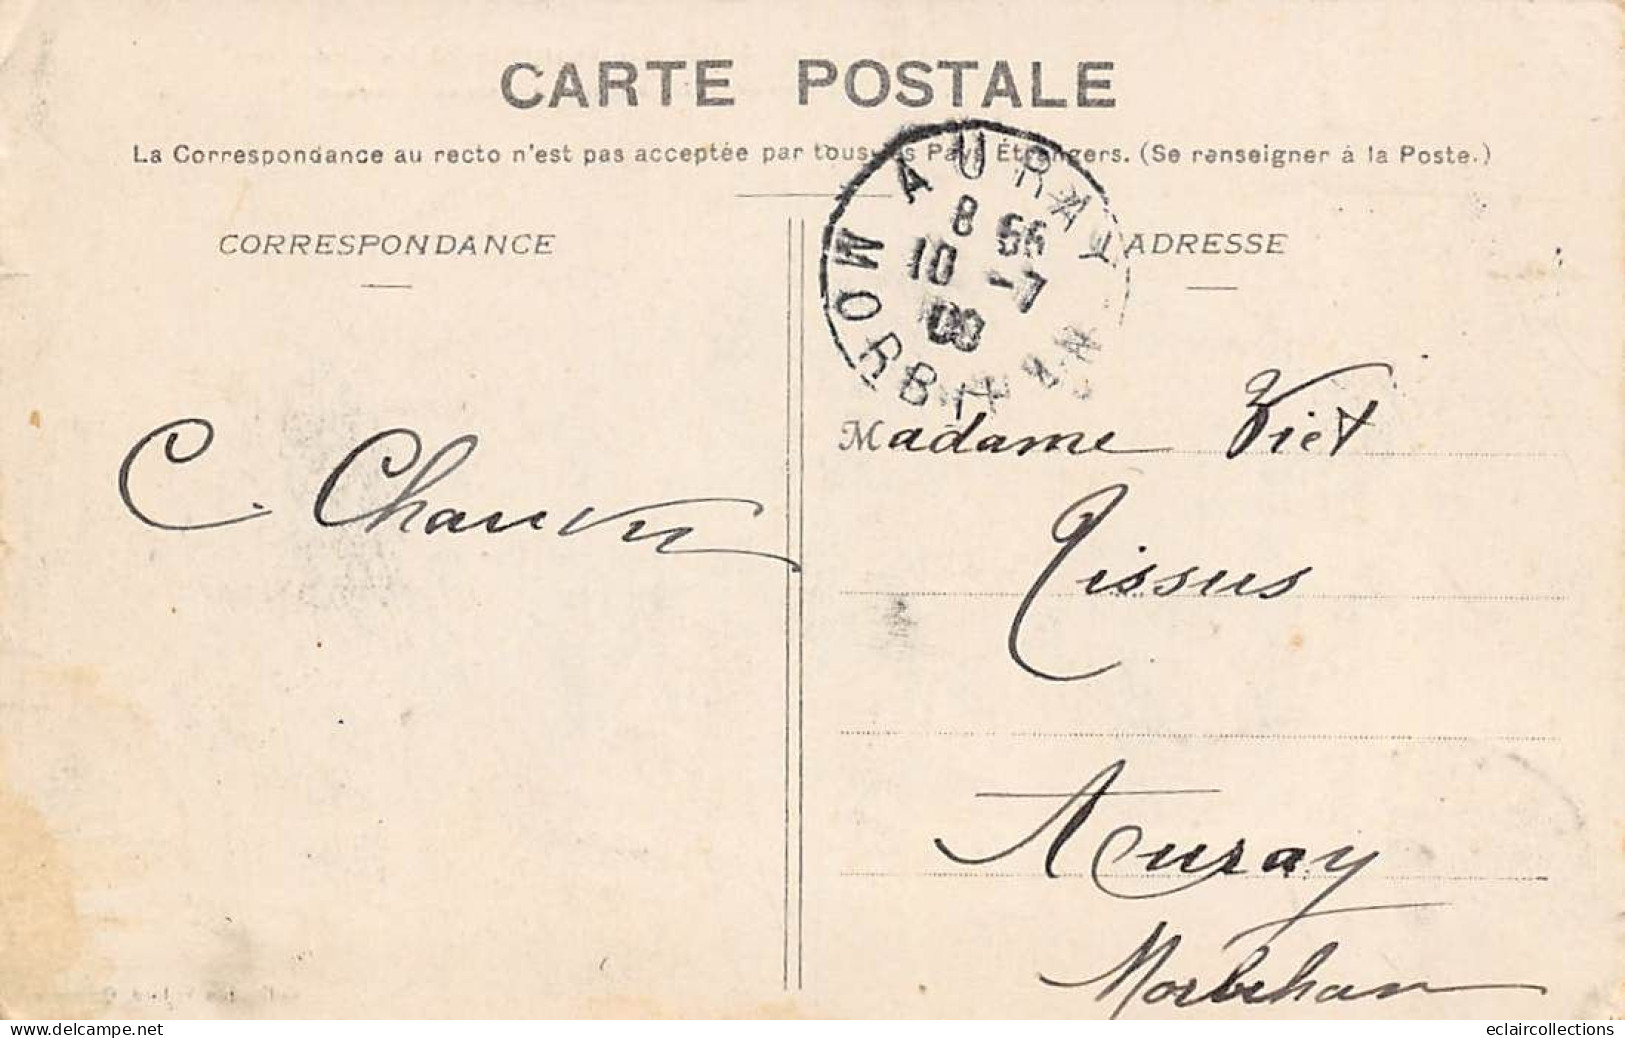 CARTE POSTALE
La Correspondance au recto n'est pas acceptée par tous les Pays Étrangers. (Se renseigner à la Poste.)
CORRESPONDANCE
ADRESSE
AURAY
8
10 -7
08
MORBIHAN
Madame Viet
C. Chauvin
Tissus
Auray
Morbihan
eclaircollections